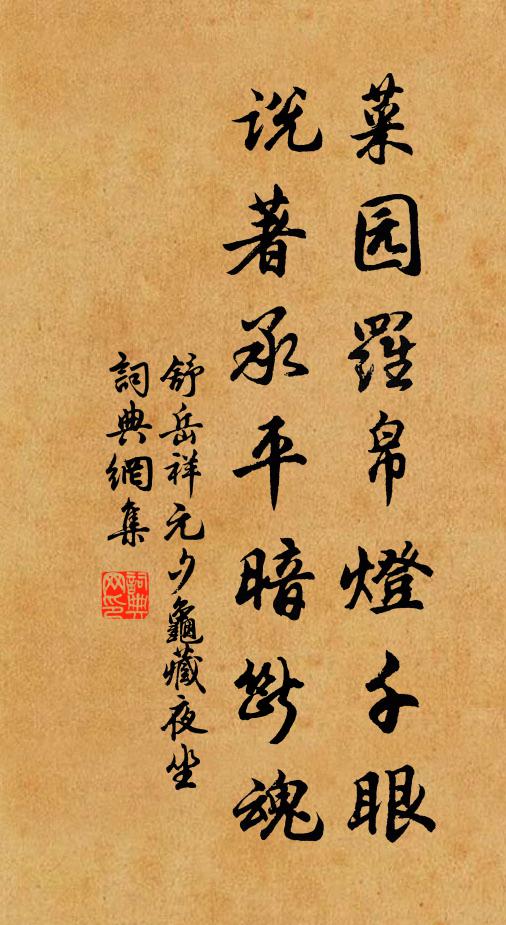 菜园羅帛燈千眼
説著承平暗斷魂
舒岳祥元夕龜藏夜坐
詞典網集
詞典网印